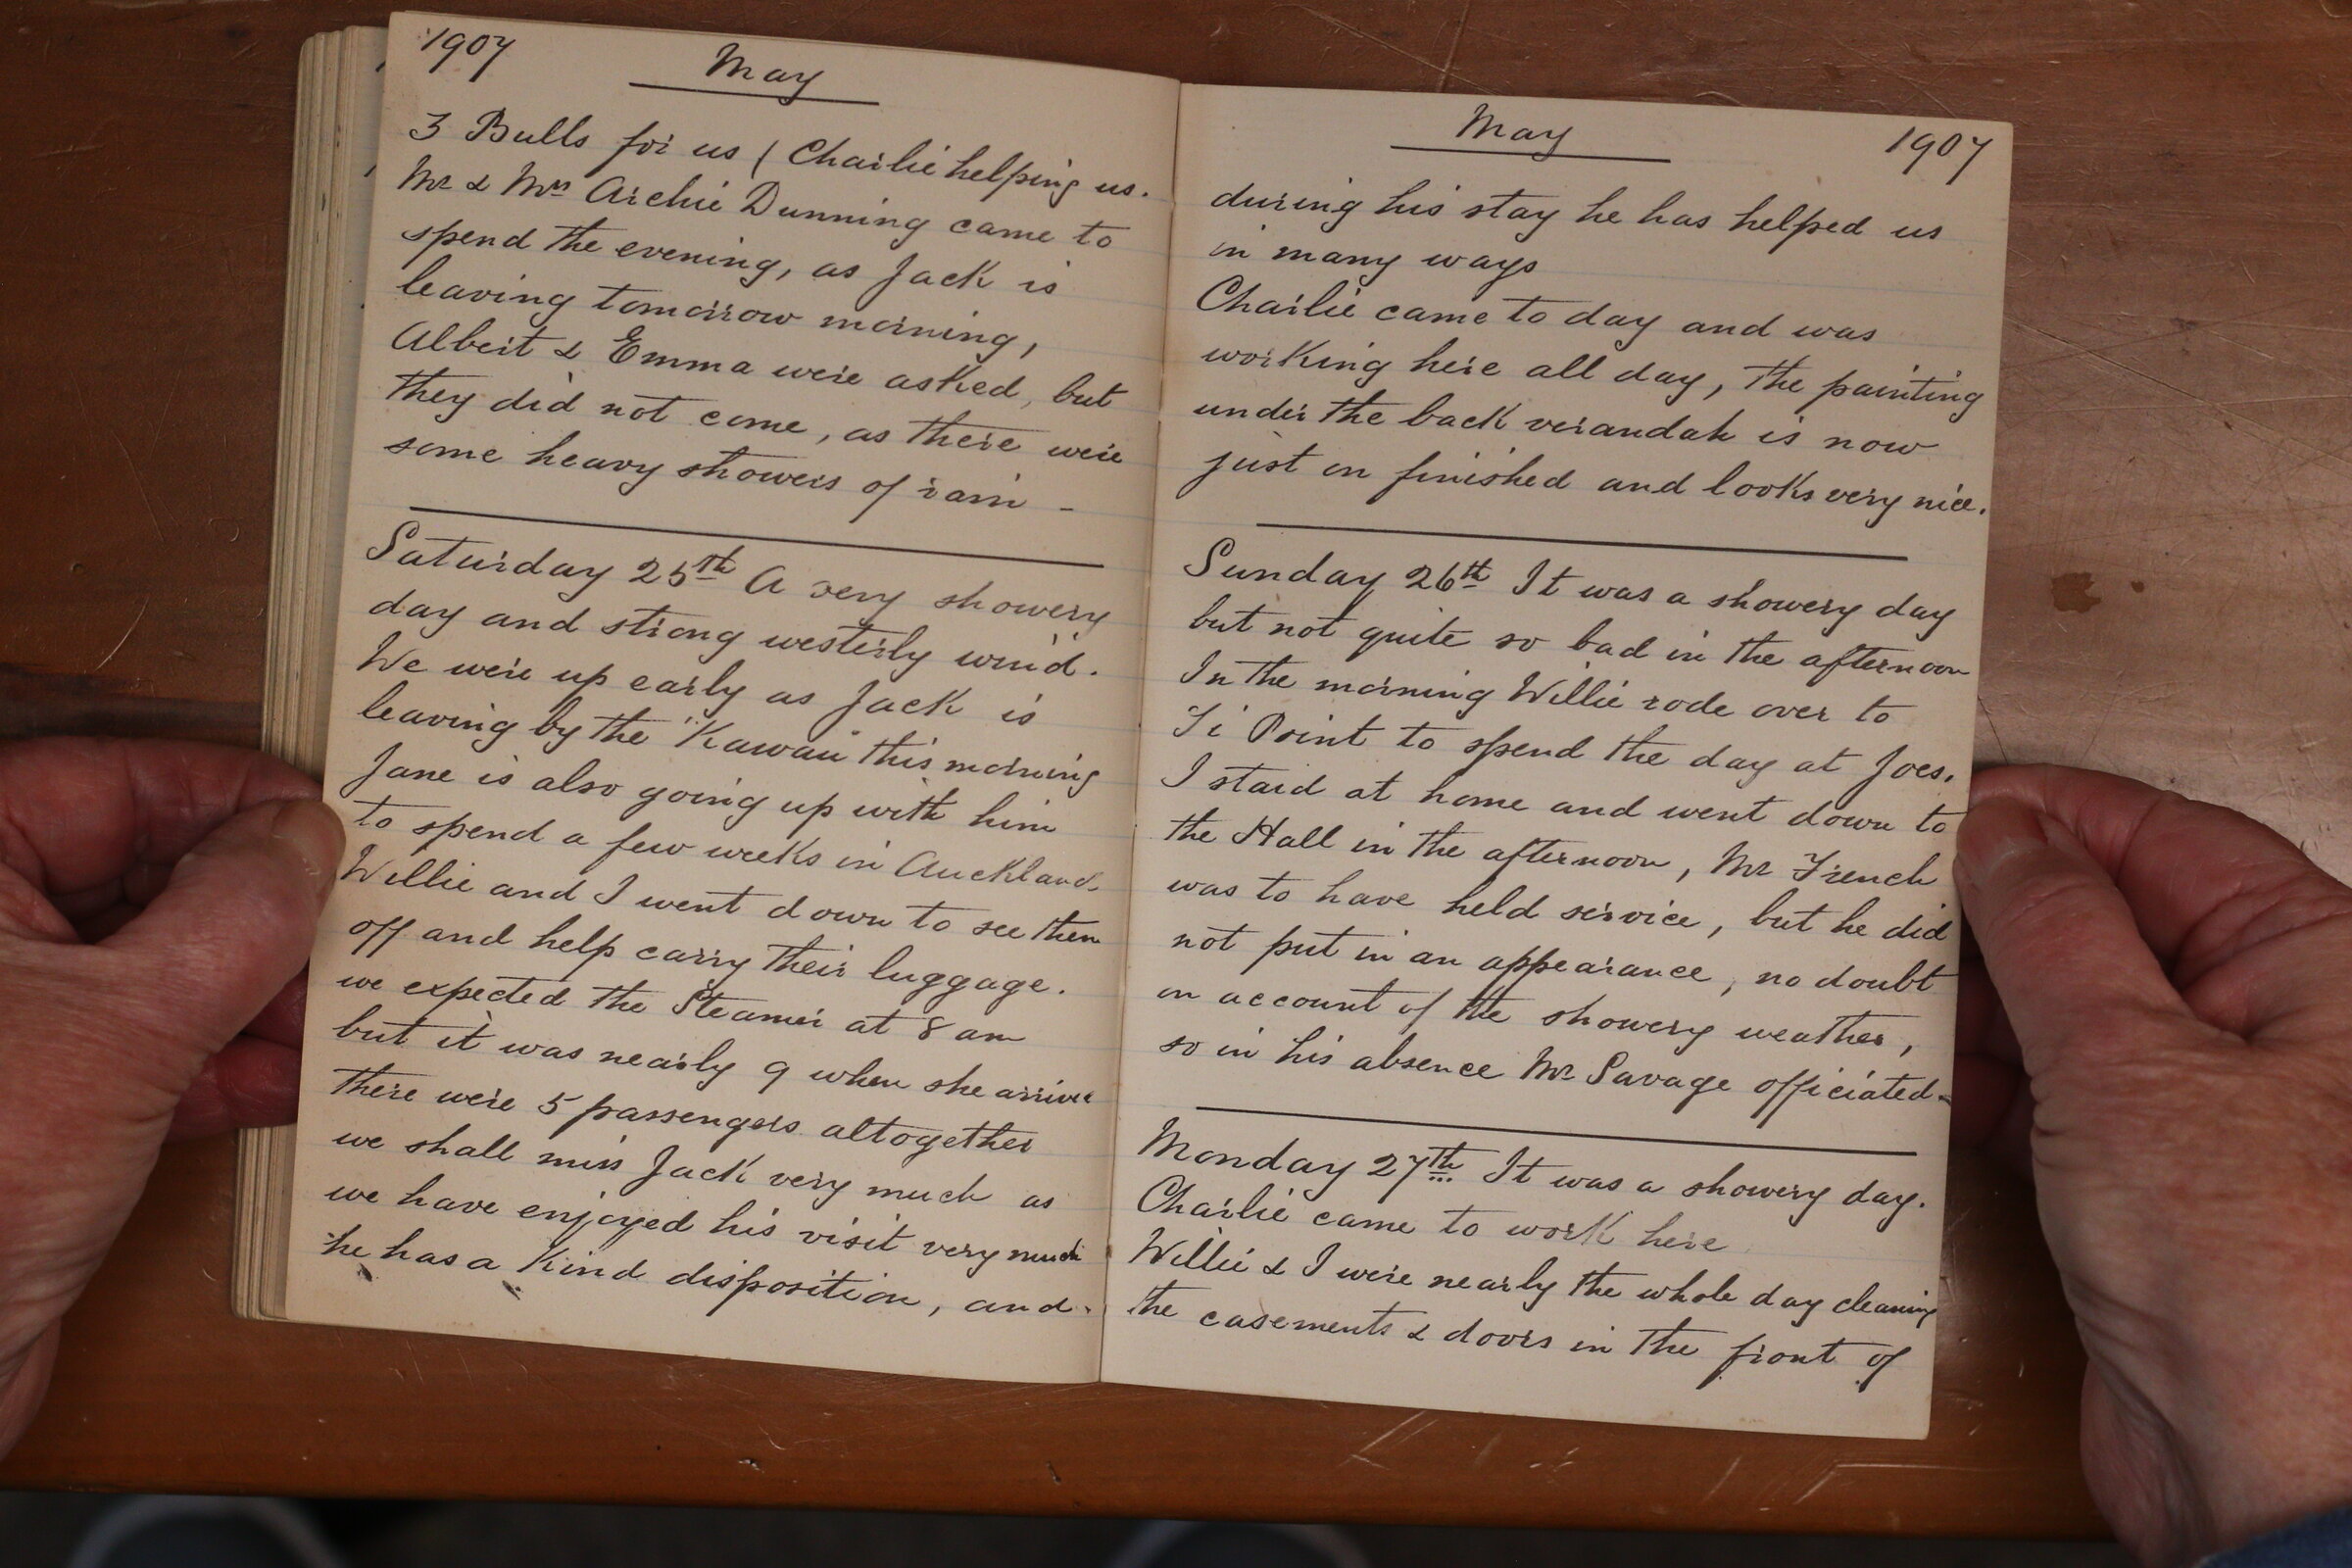 1907
May
3 Bulls for us ( Charlie helping us.
Mr & Mrs Archie Dunning came to
spend the evening, as Jack is
leaving tomorrow morning,
Albert & Emma were asked, but
they did not come, as there were
some heavy showers of rain -
Saturday 25th A very showery
day and strong westerly wind.
We were up early as Jack is
leaving by the "Kawau" this morning
Jane is also going up with him
to spend a few weeks in Auckland.
Willie and I went down to see them
off and help carry their luggage.
we expected the Steamer at 8 am
but it was nearly 9 when she arrive
there were 5 passengers altogether
we shall miss Jack very much as
we have enjoyed his visit very much
he has a kind disposition, and
May
1907
during his stay he has helped us
in many ways
Charlie came to day and was
working here all day, the painting
under the back verandah is now
just on finished and looks very nice.
Sunday 26th It was a showery day
but not quite so bad in the afternoon
In the morning Willie rode over to
Ti Point to spend the day at Joes.
I staid at home and went down to
the Hall in the afternoon, Mr French
was to have held service, but he did
not put in an appearance, no doubt
on account of the showery weather,
so in his absence Mr Savage officiated.
Monday 27th It was a showery day.
Charlie came to work here
Willie & I were nearly the whole day cleaning
the casements & doors in the front of